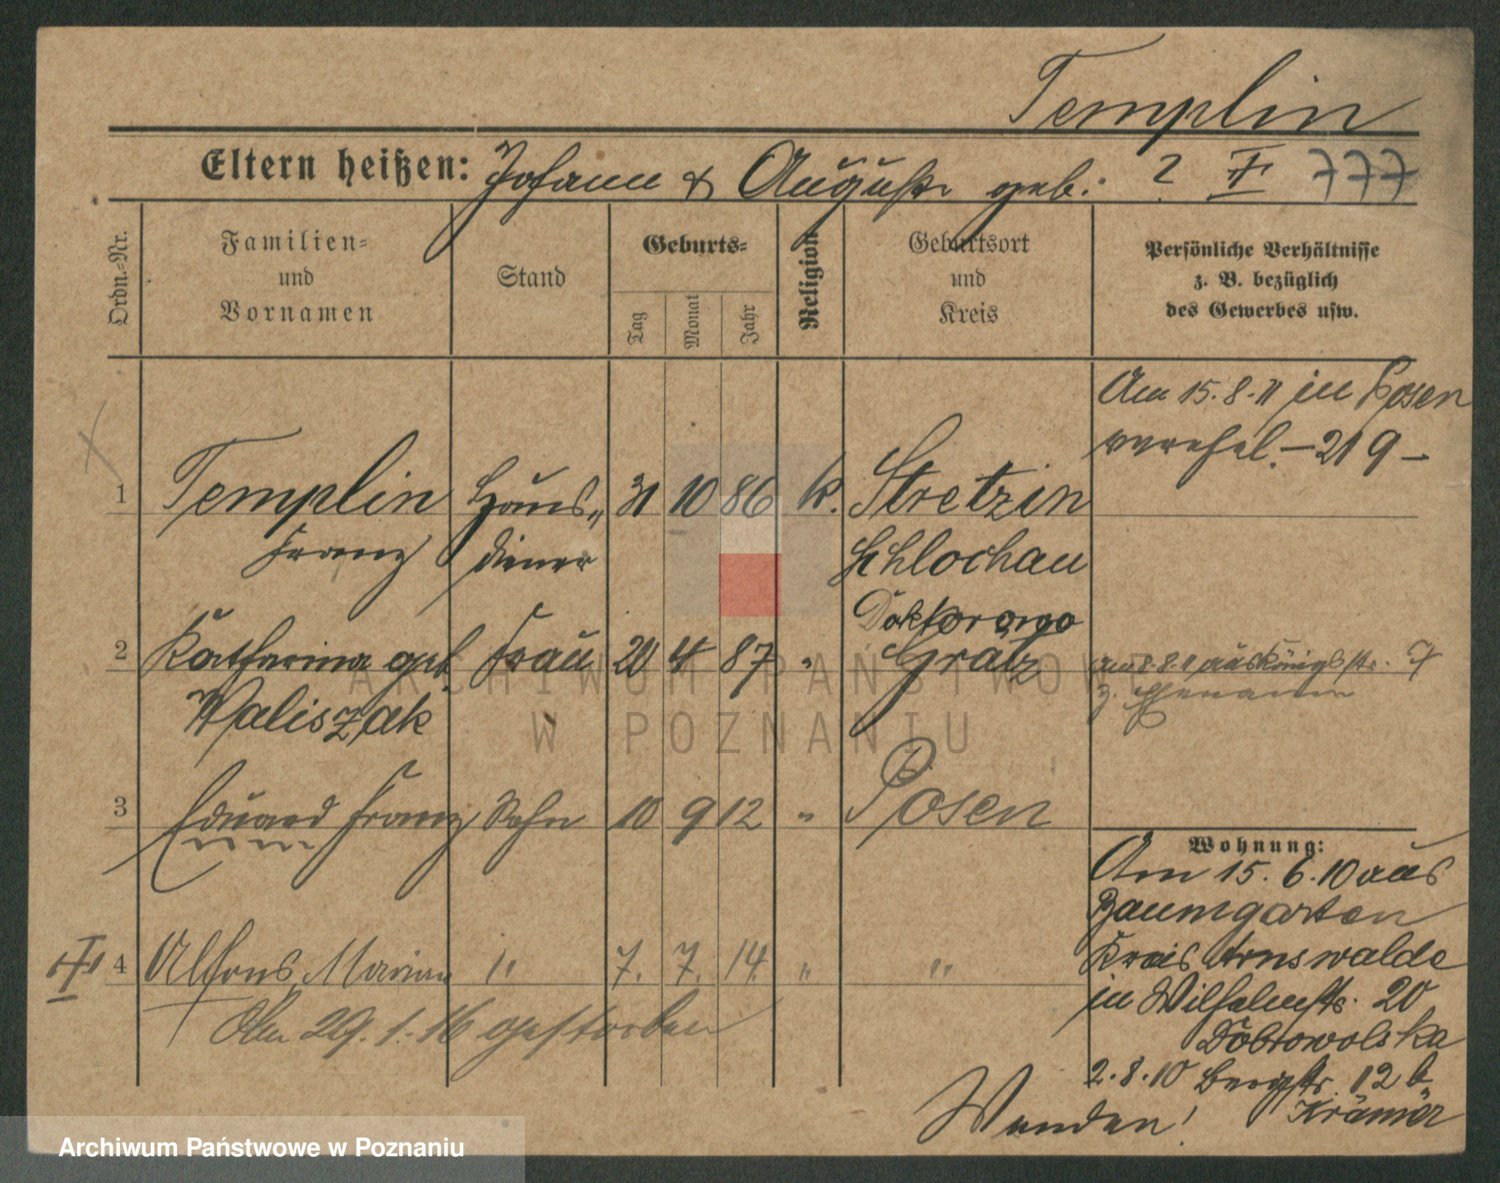 Templin
Eltern heißen: Johann & Auguste geb. ? F 777
Ordn.-Nr.
Familien-
und
Vornamen
Stand
Geburts-
Tag
Monat
Jahr
Religion
Geburtsort
und
Kreis
Persönliche Verhältnisse
z. B. bezüglich
des Gewerbes usw.
Am 15.8.11 in Posen
verehel. – 219 –
1 Templin Haus- 31 10 86 k. Stretzin
Franz diener Schlochau
Doktorowo
2 Katharina geb. Frau 20 4 87 " Grätz
am 8.8.11 aus Königstr. 7
z. Ehemann
Waliszak
3 Eduard Franz Sohn 10 9 12 " Posen
4 Alfons Marian " 7. 7. 14 " "
Am 29.1.16 gestorben
Wohnung:
Am 15.6.10 aus
Baumgarten
Kreis Arnswalde
in Wilhelmstr. 20
Dobrowolska
2.8.10 Bergstr. 12 b
Krämer
Wenden!
ARCHIWUM PAŃSTWOWE
W POZNANIU
Archiwum Państwowe w Poznaniu